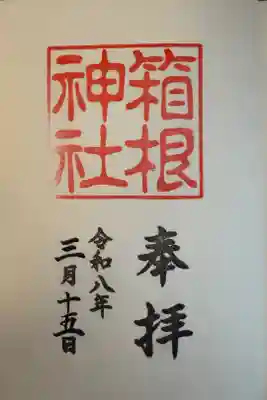 箱根
神社
奉拝
令和八年
三月十五日